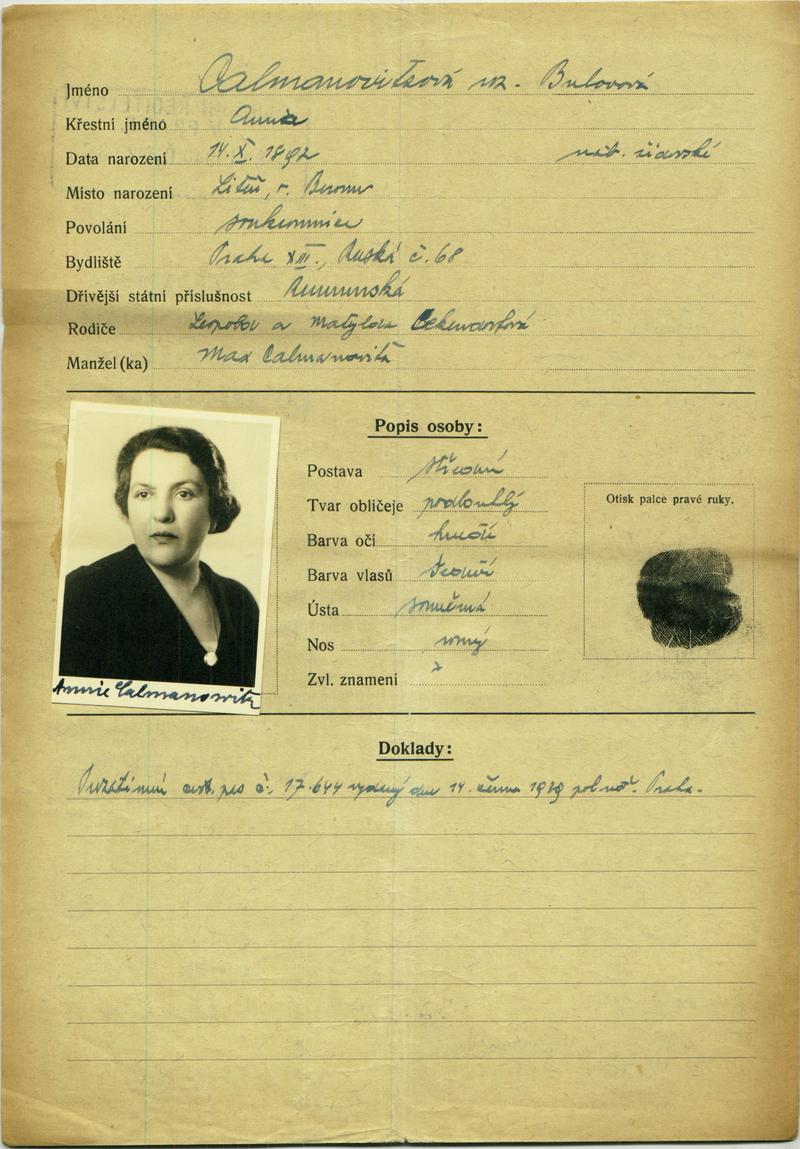 Jméno Calmanovitsová roz. Bulovová
Křestní jméno Anna
Data narození 14. X. 1892 náb. židovské
Místo narození Liteň, o. Beroun
Povolání soukromnice
Bydliště Praha XIII., Ruská č. 68
Dřívější státní příslušnost Rumunská
Rodiče Leopold a Matylda
Manžel (ka) Max Calmanovits
Popis osoby:
Postava střední
Tvar obličeje podlouhlý
Barva očí hnědé
Barva vlasů
Ústa souměrná
Nos rovný
Zvl. znamení
Otisk palce pravé ruky.
Annie Calmanowitz
Doklady:
Prozatimní cest. pas č. 17.644 vydaný dne 14. června 1939 pol. řed. Praha.